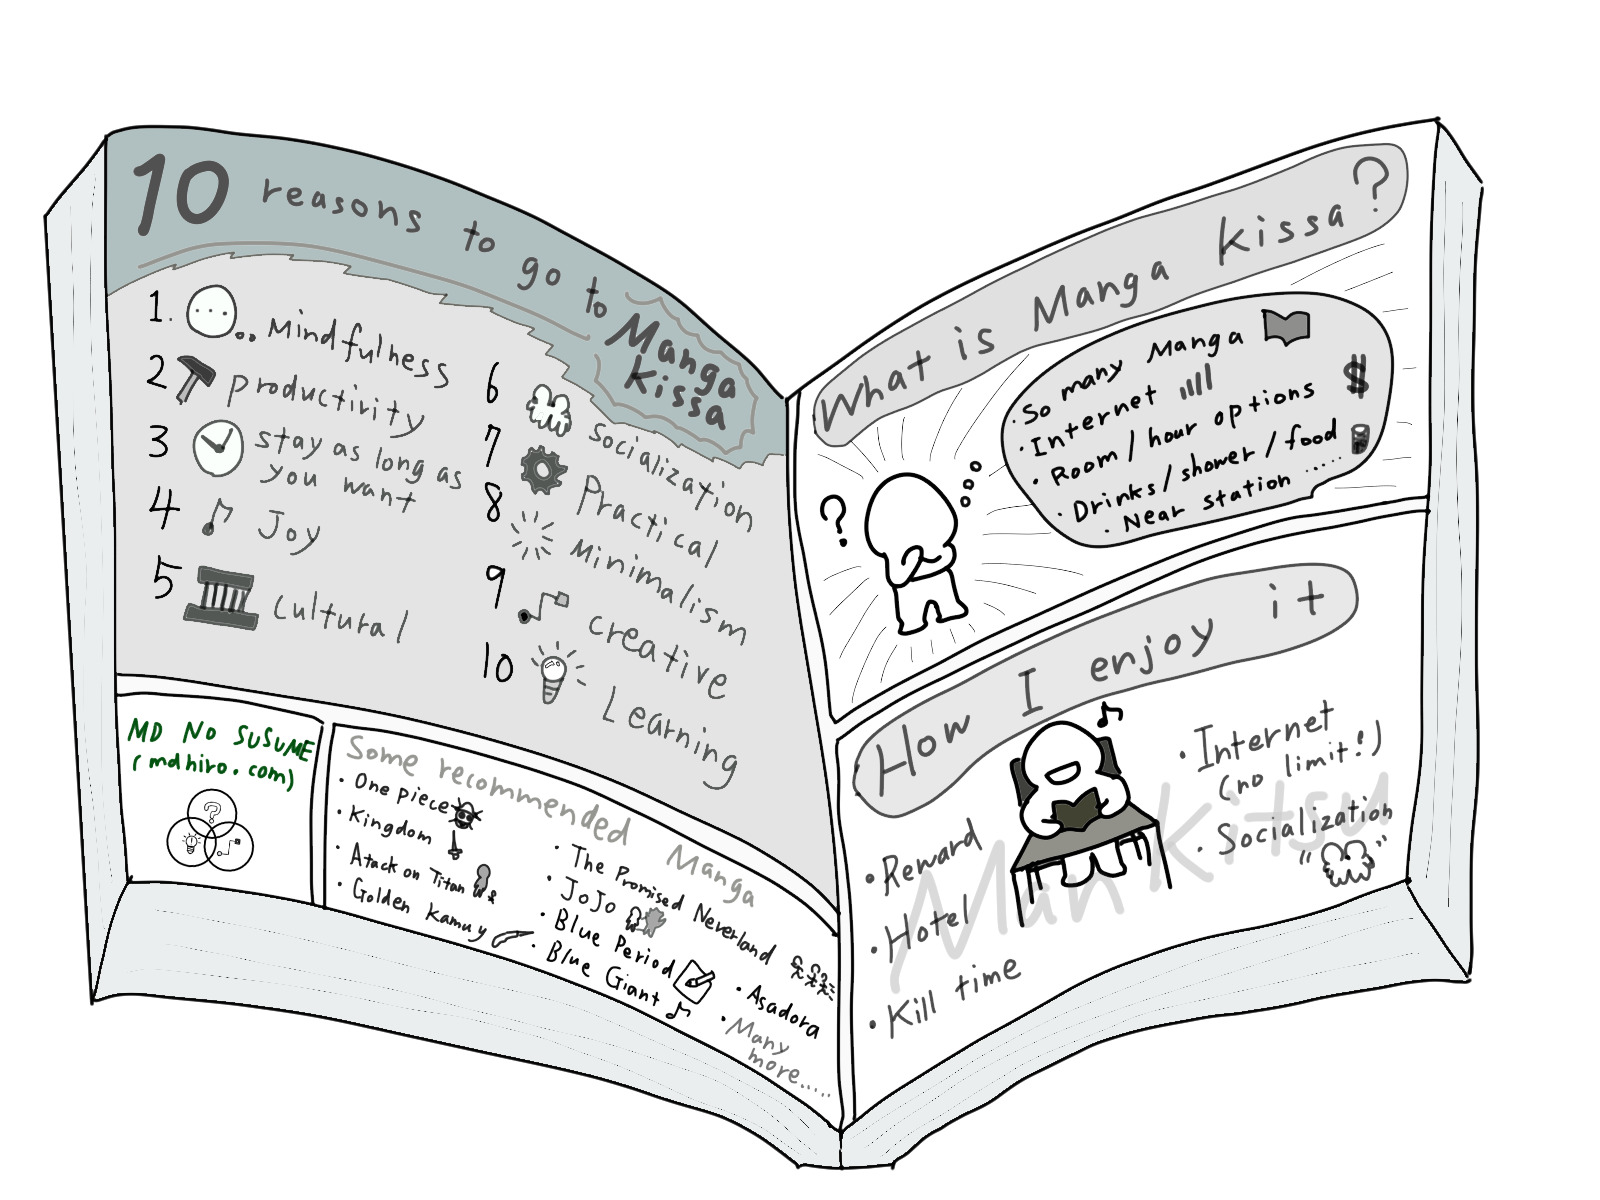 10 reasons to go to Manga Kissa
1. Mindfulness
2 productivity
3 stay as long as
you want
4 Joy
5 cultural
6 Socialization
7 Practical
8 Minimalism
9 creative
10 Learning
MD NO SUSUME
(mdhiro.com)
?
Some recommended Manga
・One piece
・Kingdom
・Atack on Titan
・Golden Kamuy
・The Promised Neverland
・JoJo
・Blue Period
・Blue Giant
・Asadora
・Many
more.....
What is Manga Kissa?
・So many Manga
・Internet
・Room / hour options $
・Drinks / shower / food
・Near station ......
?
How I enjoy it
・Reward
・Hotel
・Kill time
・Internet
(no limit!)
・Socialization
Man Kitsu